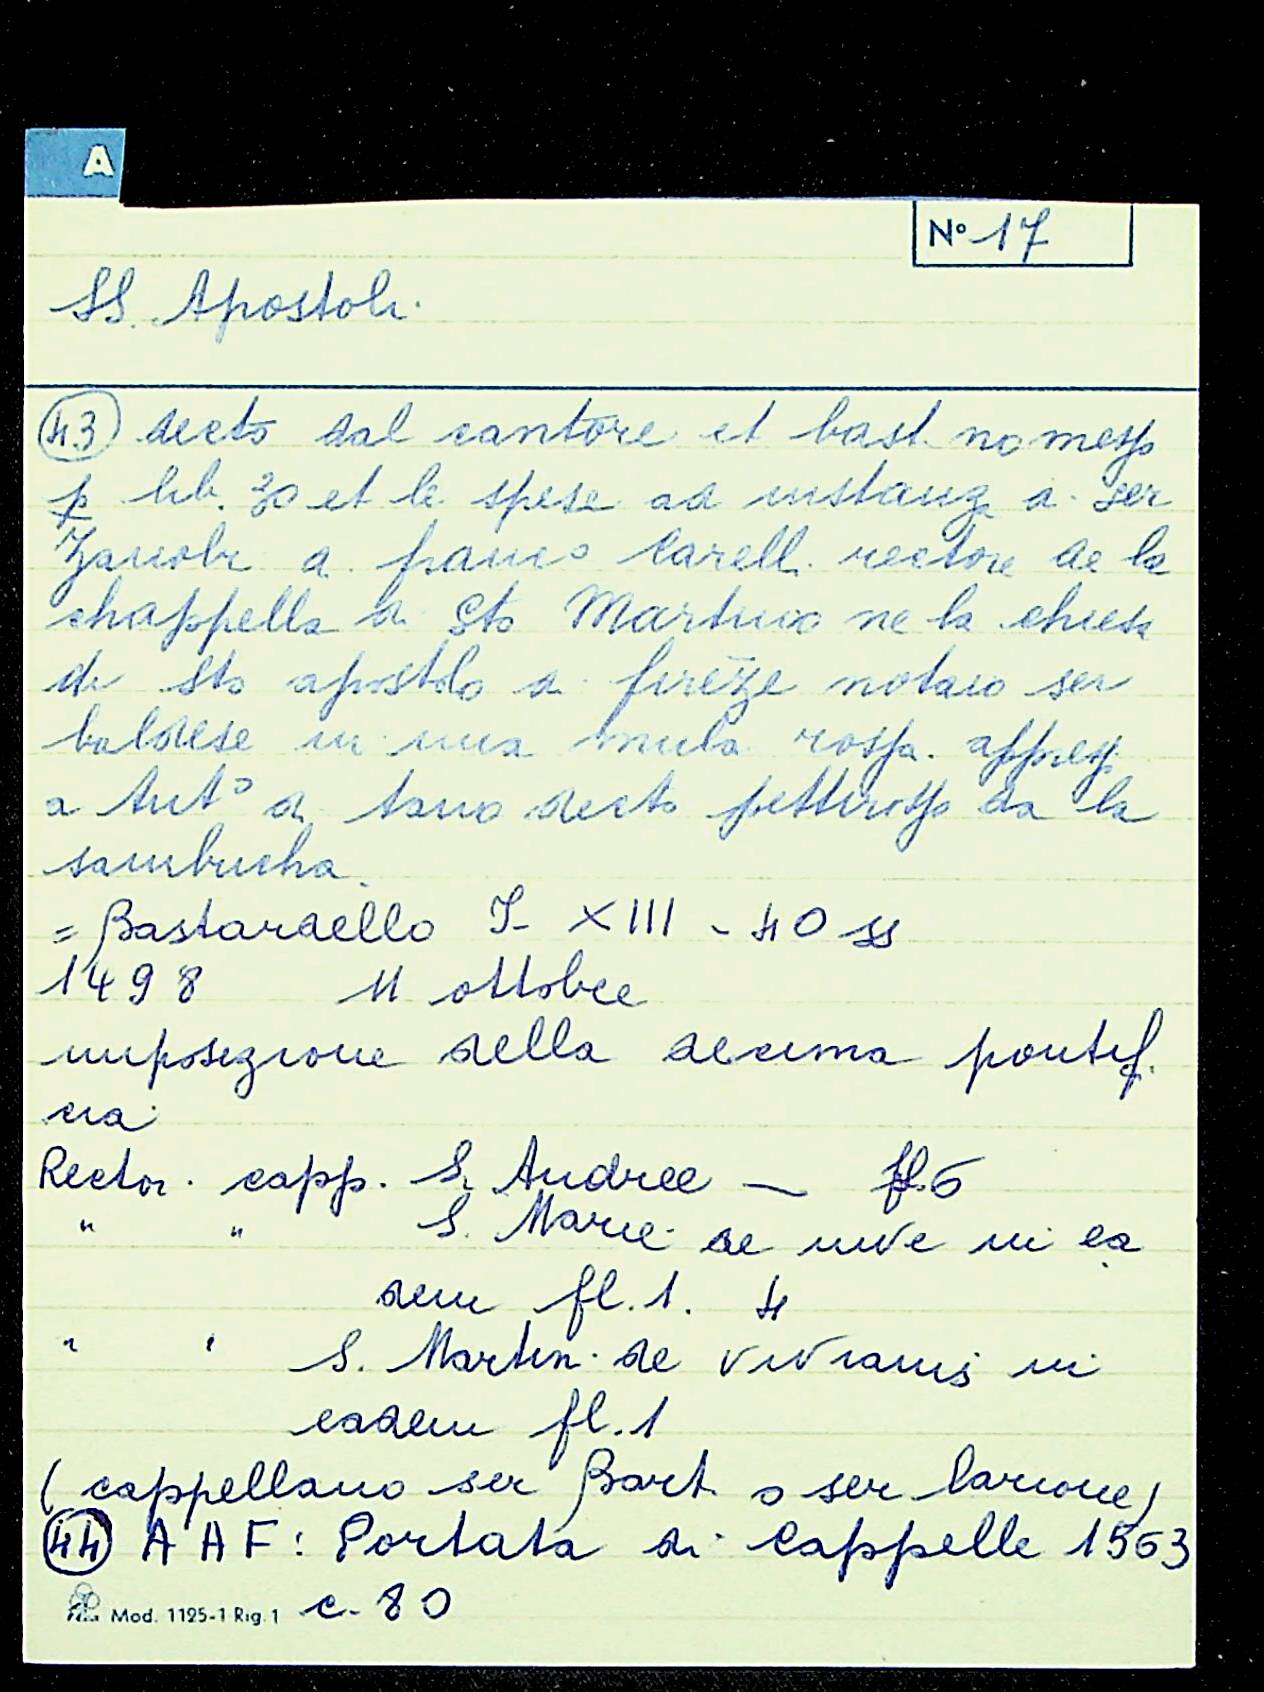 A
N° 17
SS. Apostoli.
43 decto dal cantore et bast. no messo
p lib. 30 et le spese ad instanza di Ser
Zanobi di franc° Carelli rectore de la
chappella di Sto Martino ne la chiesa
di sto apostolo di firēze notaio ser
baldese in una mula rossa. appresso
a Ant° di tano decto pettirosso da la
sambucha.
= Bastardello I- XIII - 40 ss
1498 11 ottobre
imposizione della decima pontif.
cia
Rector. capp. S. Andree — fl. 6
" " S. Marie de nive in ea
dem fl. 1. 4
" " S. Martin. de vivianis in
eadem fl. 1
(cappellano ser Bart. o ser Larione)
44 A A F: Portata di cappelle 1563
Mod. 1125-1 Rig. 1 c. 80